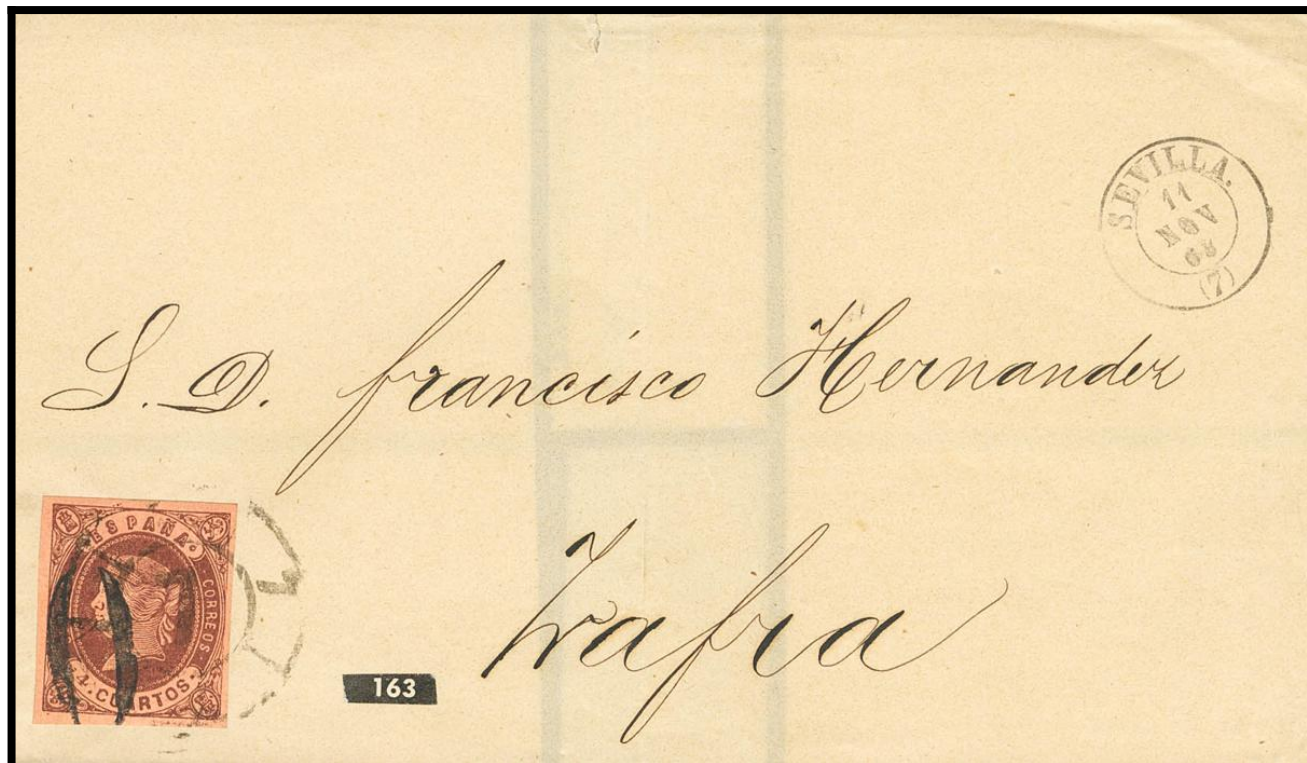 SEVILLA.
11
NOV
63
(7)
S. D. francisco Hernandez
Zafra
ESPAÑA
CORREOS
4. CUARTOS.
163